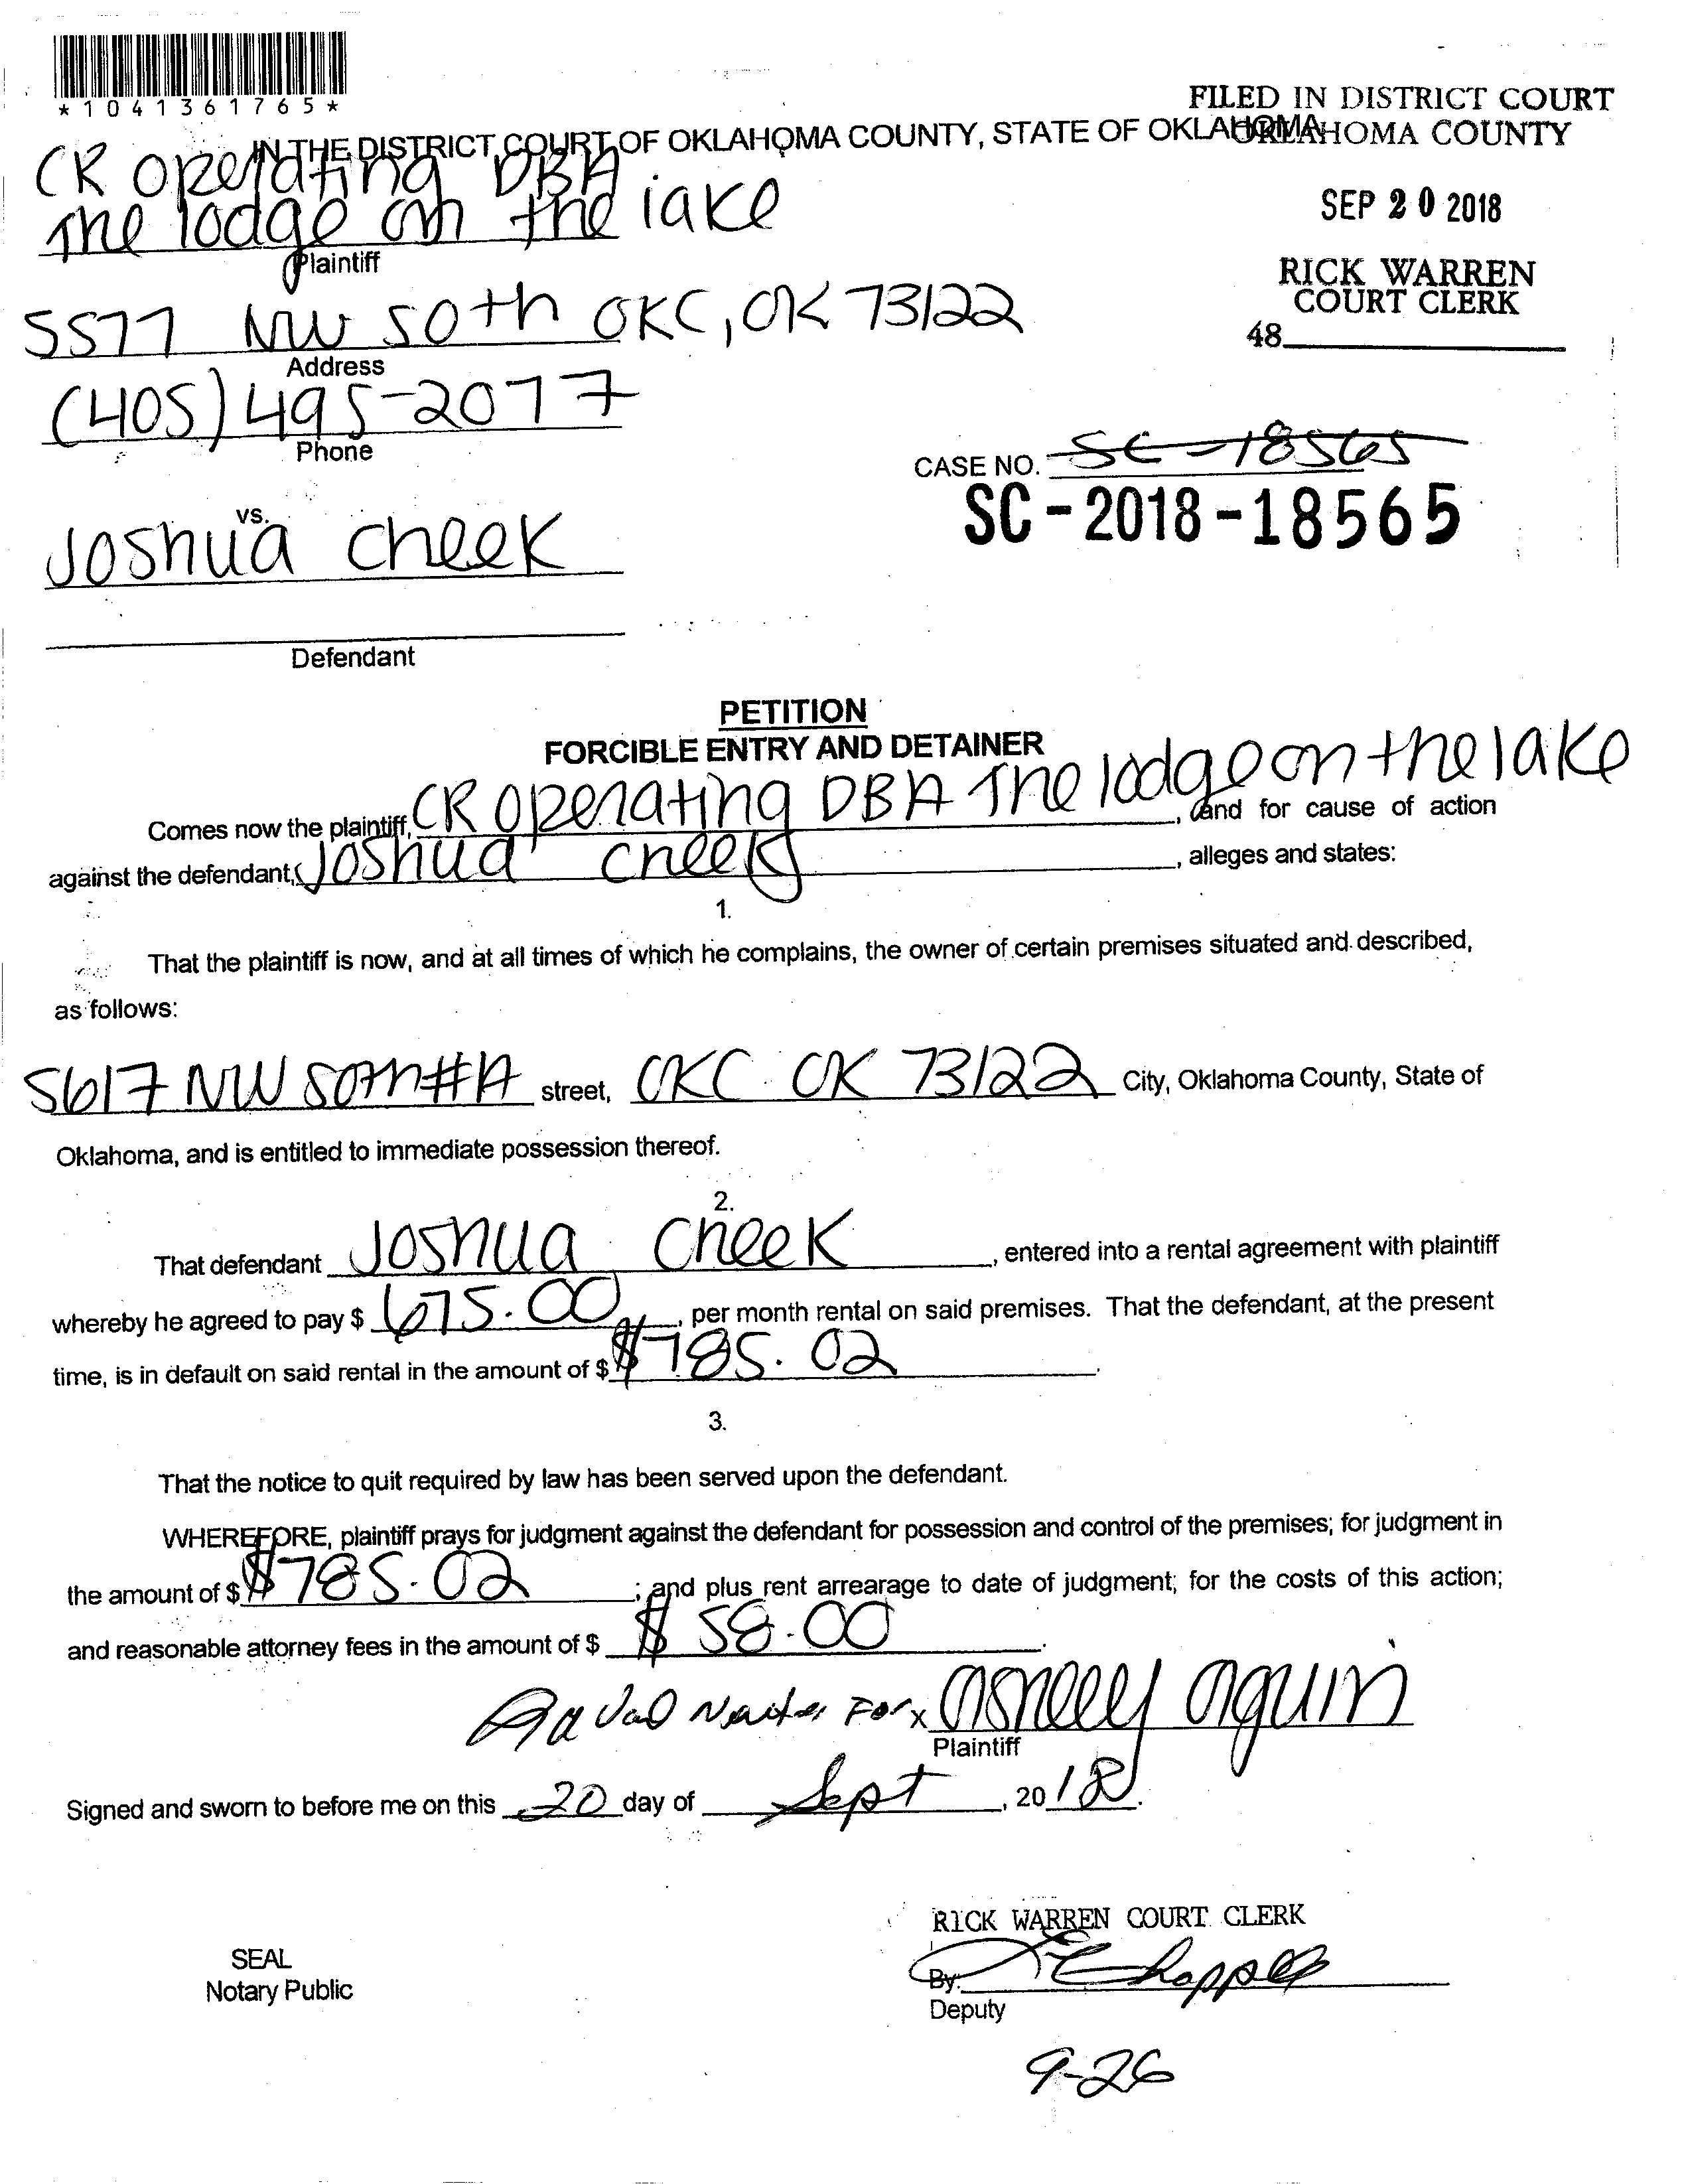 *1041361765*
FILED IN DISTRICT COURT
OKLAHOMA COUNTY
IN THE DISTRICT COURT OF OKLAHOMA COUNTY, STATE OF OKLAHOMA
CR operating DBA
The lodge on the lake
Plaintiff
SEP 20 2018
RICK WARREN
COURT CLERK
48
5577 NW 50th OKC, OK 73122
Address
(405) 495-2077
Phone
CASE NO. SC-18565
SC-2018-18565
vs.
Joshua cheek
Defendant
PETITION
FORCIBLE ENTRY AND DETAINER
Comes now the plaintiff, CR operating DBA The lodge on the lake, and for cause of action
against the defendant, Joshua cheek, alleges and states:
1.
That the plaintiff is now, and at all times of which he complains, the owner of certain premises situated and described,
as follows:
5617 NW 50th #A street, OKC OK 73122 City, Oklahoma County, State of
Oklahoma, and is entitled to immediate possession thereof.
2.
That defendant Joshua cheek, entered into a rental agreement with plaintiff
whereby he agreed to pay $ 675.00, per month rental on said premises. That the defendant, at the present
time, is in default on said rental in the amount of $ $785.02.
3.
That the notice to quit required by law has been served upon the defendant.
WHEREFORE, plaintiff prays for judgment against the defendant for possession and control of the premises; for judgment in
the amount of $ $785.02; and plus rent arrearage to date of judgment; for the costs of this action;
and reasonable attorney fees in the amount of $ $ 58.00.
For x Ashley
Plaintiff
Signed and sworn to before me on this 20 day of Sept, 2018.
RICK WARREN COURT CLERK
SEAL
Notary Public
By:
Deputy
9-26